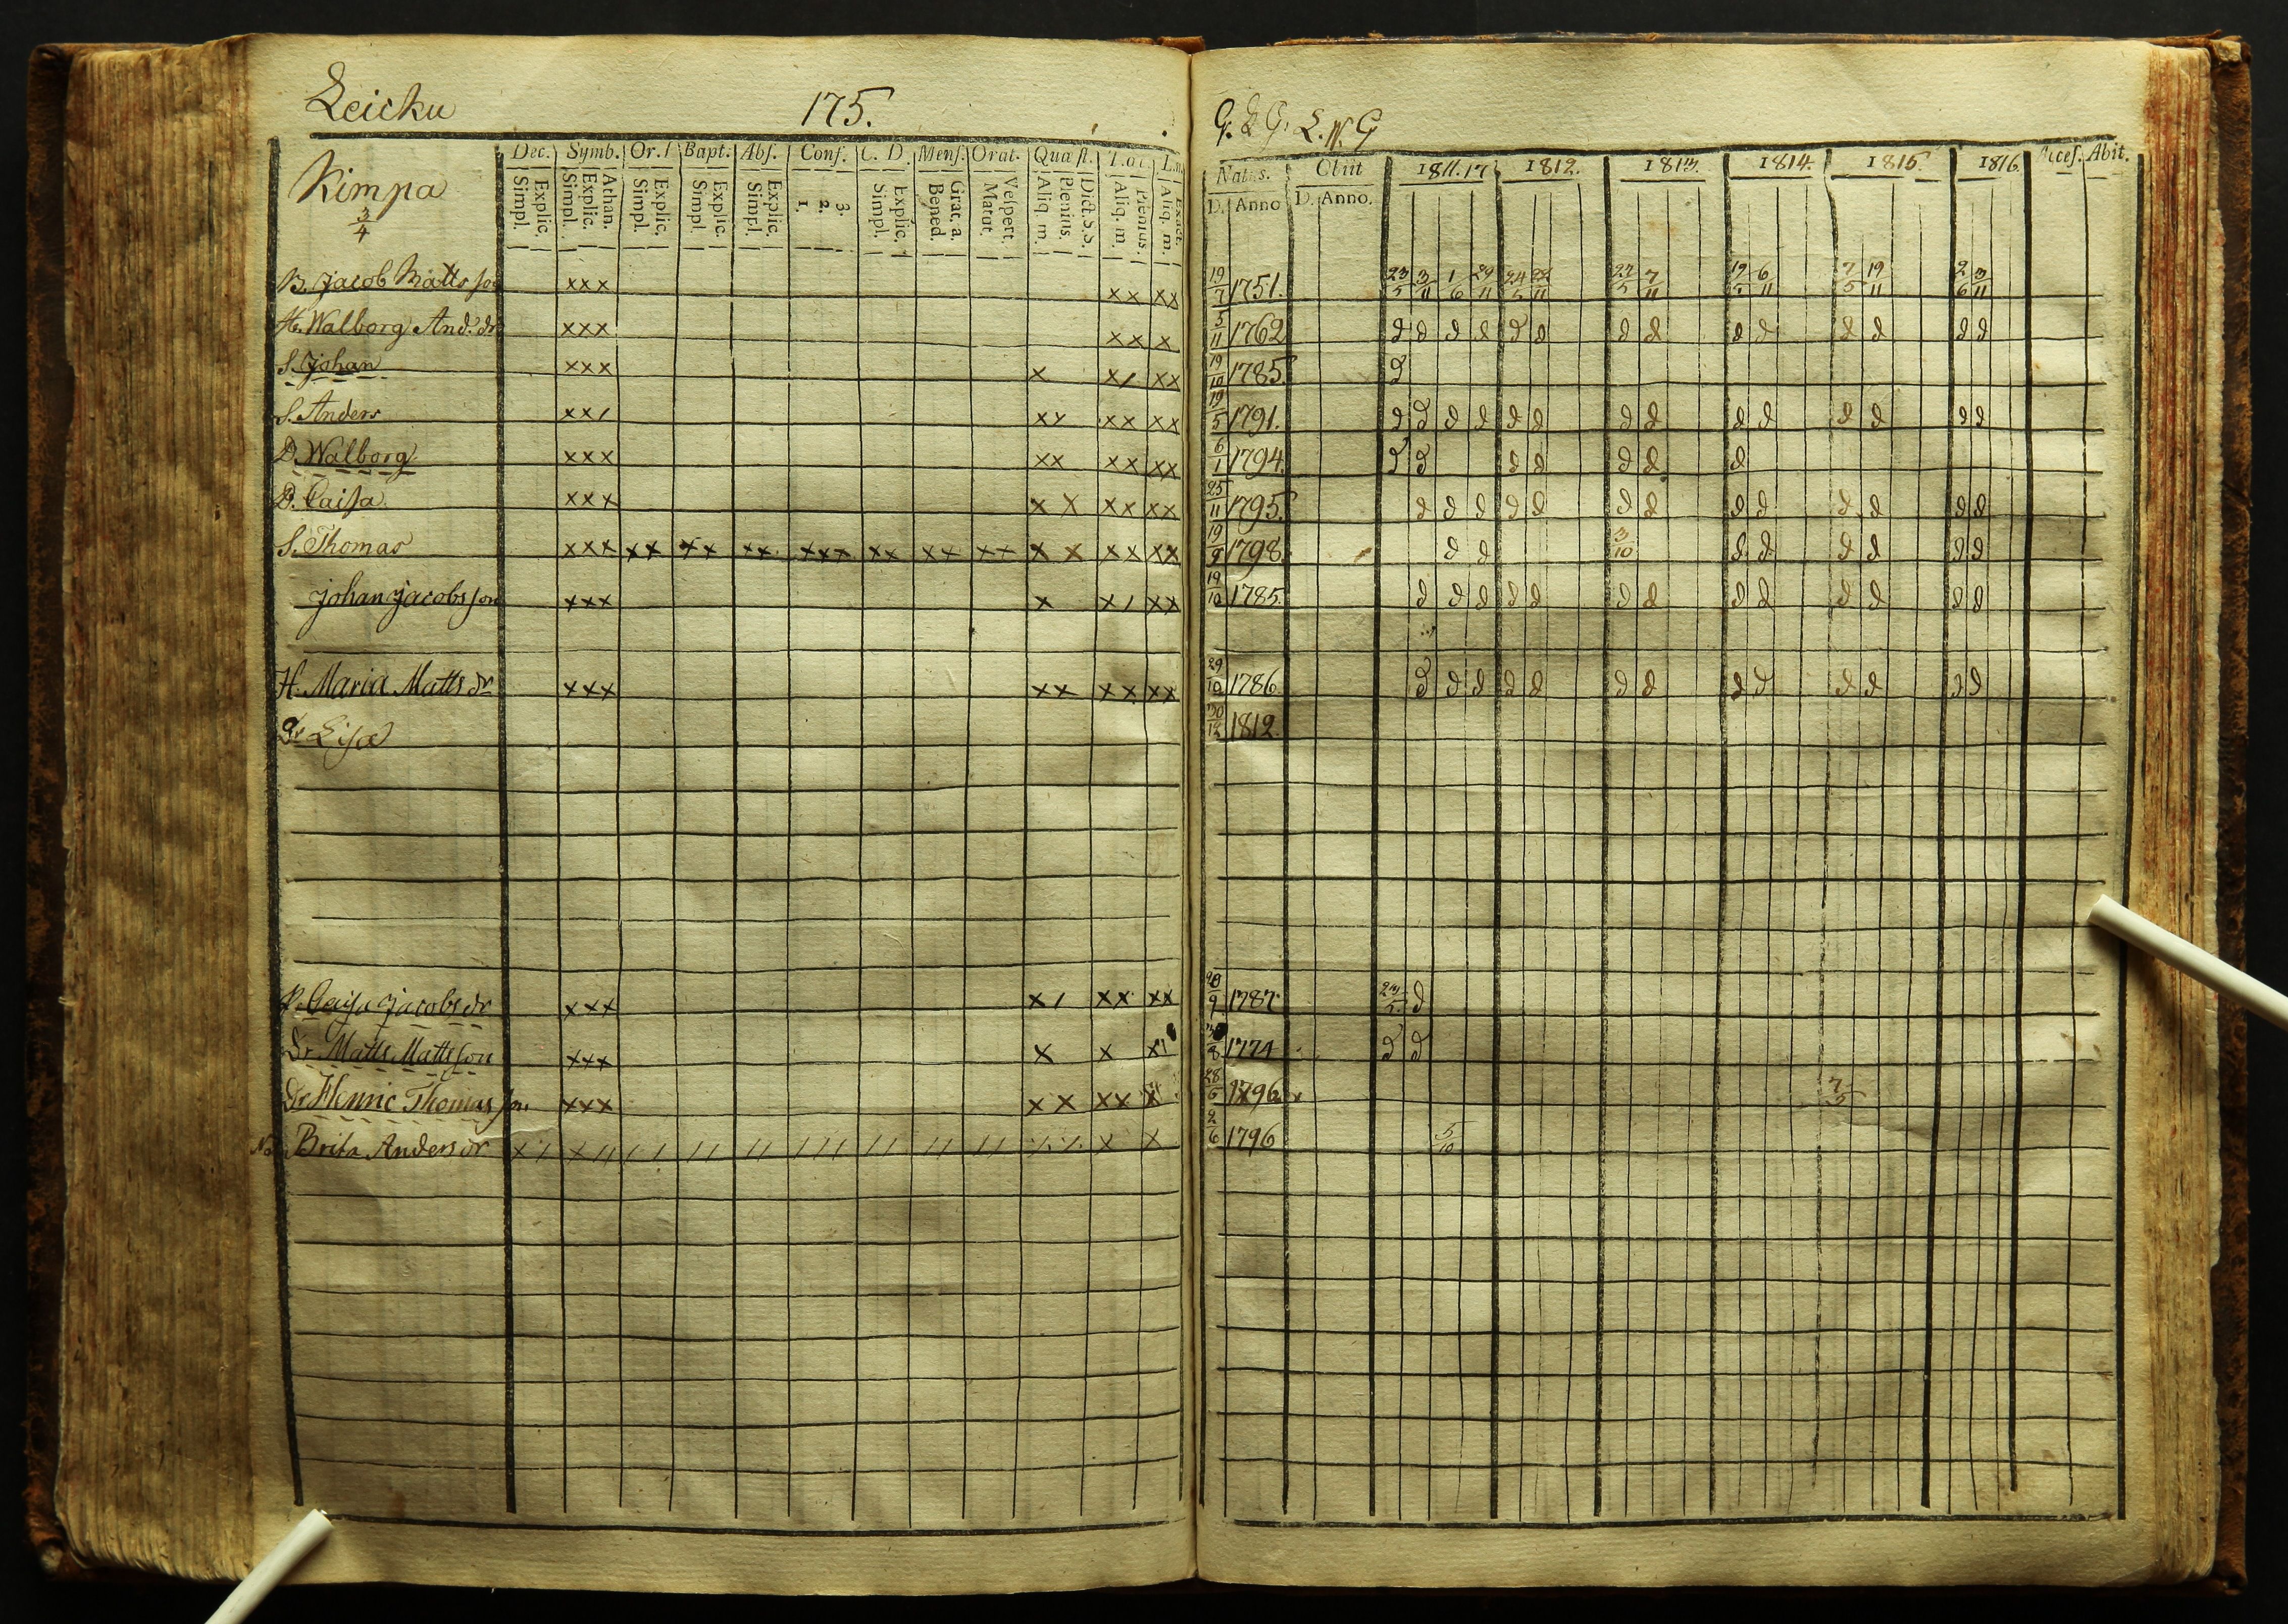 Leicku 175.
G. & G. L. N. G
Kimpa
3/4
Dec. Symb. Or. Bapt. Abs. Conf. C. D. Mens. Orat. Quæst.
Explic. Simpl. Athan. Explic. Simpl. Explic. Simpl. Explic. Simpl. Explic. Simpl. 3. 2. 1. Explic. Simpl. Grat. a. Bened. Vespert. Matut. Dict. S.S. Plenius. Aliq. m. Plenius. Aliq. m. Exact. Aliq. m.
Natus. Obiit 1811.17 1812. 1813. 1814. 1815. 1816. Acces. Abit.
D. Anno D. Anno.
B. Jacob Mattsson xxx xx xx 19/7 1751. 23/5 3/11 1/6 29/11 24/5 22/11 7/11 6/11 7/5 19/11 2/6 3/11
H. Walborg And. dr xxx xx x 3/11 1762 d d d d d d d d d d d d d d
S. Johan xxx x x/ xx 19/10 1785 d
S. Anders xx/ xx xx xx 19/5 1791. d d d d d d d d d d d d d d
D. Walborg xxx xx xx xx 6/1 1794. d d d d d d d
D. Caisa xxx x x xx xx 25/11 1795. d d d d d d d d d d d d d
S. Thomas xxx xx xx xx xxx xx xx xx x x xx xx 19/9 1798. d d 3/10 d d d d d d
Johan Jacobsson xxx x x/ xx 19/10 1785. d d d d d d d d d d d d d
H. Maria Matts dr xxx xx xx xx 29/10 1786 d d d d d d d d d d d d d
Dr Lisa 30/12 1812.
P. Caisa Jacobs dr xxx x/ xx xx 28/9 1787 d
Dr. Matts Mattsson xxx x x 1774 d d
Dr Henric Thomasson xxx xx xx 28/6 1796 7/5
Brita Anders dr x/ x// // // // /// // // // x x 2/6 1796 5/10